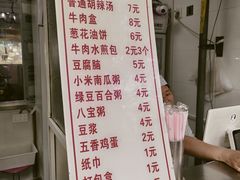 普通胡辣汤 7元
牛肉盒 8元
葱花油饼 6元
牛肉水煎包 2元3个
豆腐脑 5元
小米南瓜粥 4元
绿豆百合粥 4元
八宝粥 4元
豆浆 2元
五香鸡蛋 2元
纸巾 1元
打包盒 1元